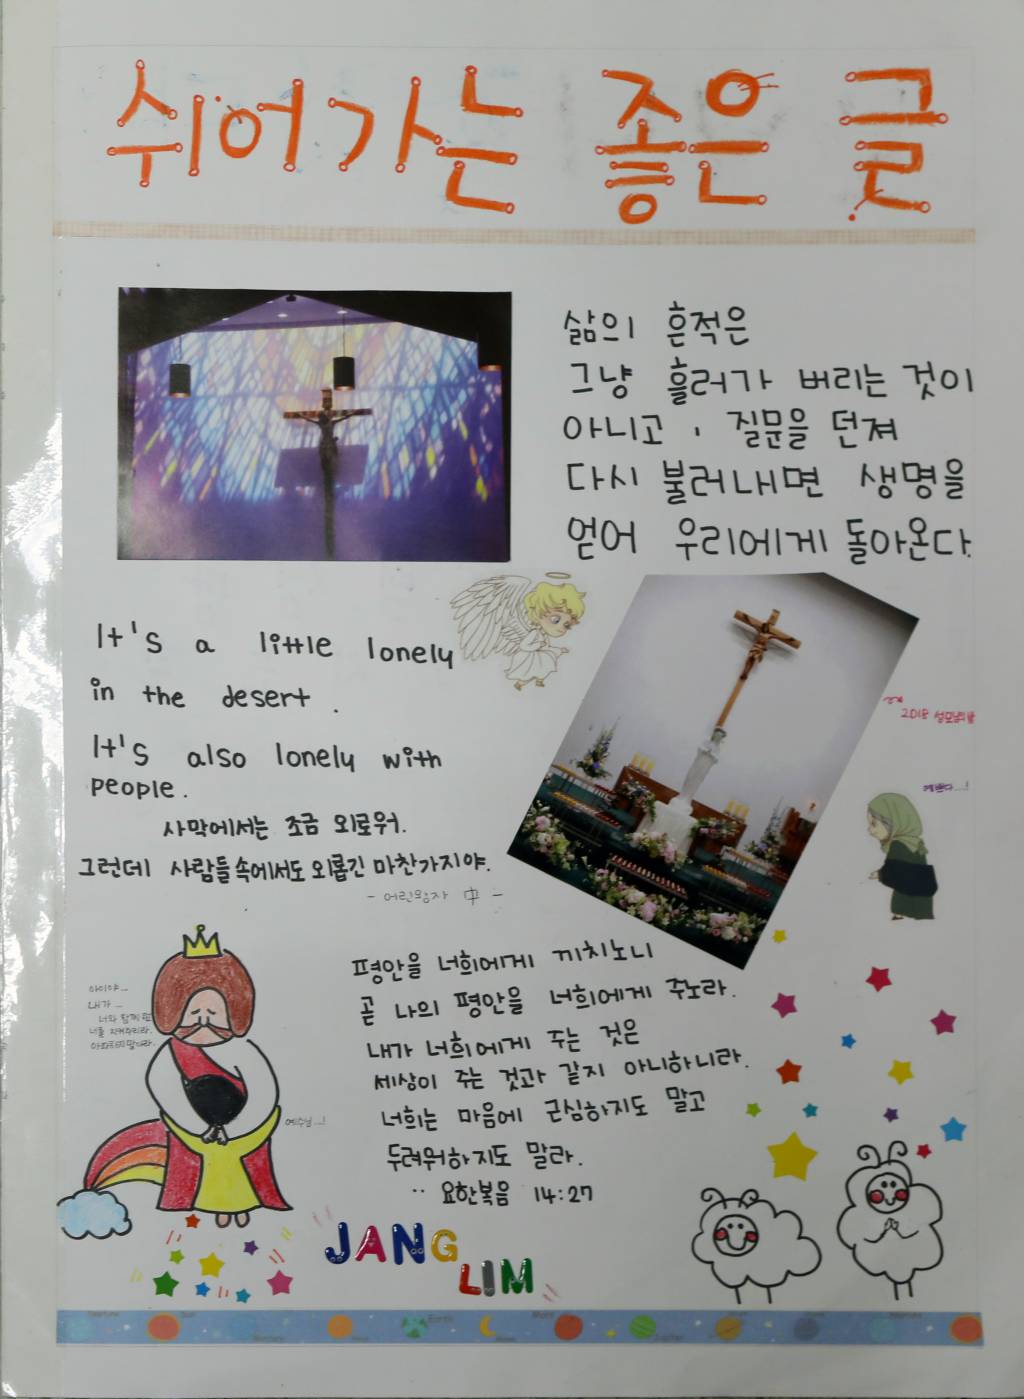 쉬어가는 좋은 글
삶의 흔적은
그냥 흘러가 버리는 것이
아니고, 질문을 던져
다시 불러내면 생명을
얻어 우리에게 돌아온다.
It's a little lonely
in the desert.
It's also lonely with
people.
사막에서는 조금 외로워.
그런데 사람들 속에서도 외롭긴 마찬가지야.
- 어린왕자 中 -
2018 성모의 밤
예쁘다...!
평안을 너희에게 끼치노니
곧 나의 평안을 너희에게 주노라.
내가 너희에게 주는 것은
세상이 주는 것과 같지 아니하니라.
너희는 마음에 근심하지도 말고
두려워하지도 말라.
요한복음 14:27
아이야...
내가...
너와 함께
너를 지켜주리라.
예수님...!
JANG
LIM
Earth